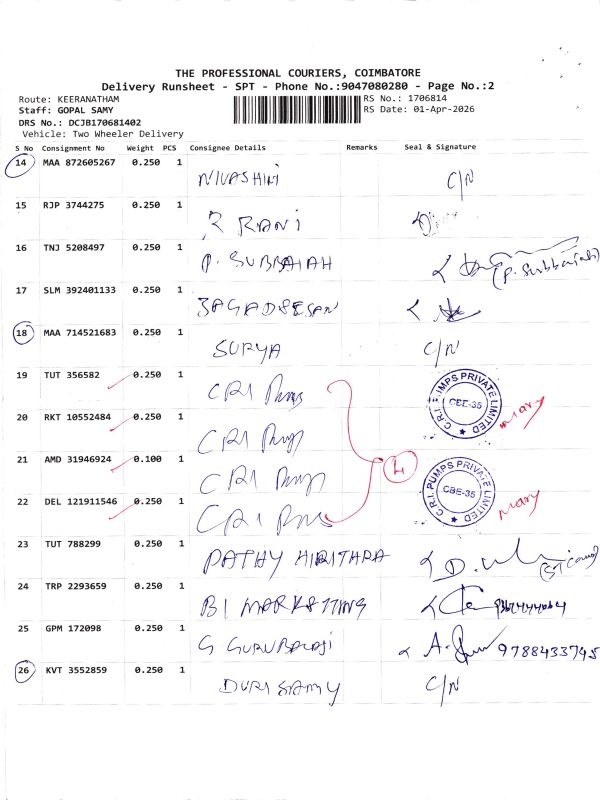 THE PROFESSIONAL COURIERS, COIMBATORE
Delivery Runsheet - SPT - Phone No.:9047080280 - Page No.:2
Route: KEERANATHAM RS No.: 1706814
Staff: GOPAL SAMY RS Date: 01-Apr-2026
DRS No.: DCJB170681402
Vehicle: Two Wheeler Delivery
S No Consignment No Weight PCS Consignee Details Remarks Seal & Signature
14 MAA 872605267 0.250 1 NIVASHINI C/N
15 RJP 3744275 0.250 1 R RANI
16 TNJ 5208497 0.250 1 P. SUBBAIAH (P. Subbaiah)
17 SLM 392401133 0.250 1 JAGADEESAN
18 MAA 714521683 0.250 1 SURYA C/N
19 TUT 356582 0.250 1 CRI Pumps C.R.I. PUMPS PRIVATE LIMITED CBE-35 Mary
20 RKT 10552484 0.250 1 CRI Pumps
21 AMD 31946924 0.100 1 CRI Pumps 4 C.R.I. PUMPS PRIVATE LIMITED CBE-35
22 DEL 121911546 0.250 1 CRI Pumps Mary
23 TUT 788299 0.250 1 PATHY
24 TRP 2293659 0.250 1 BI MARKETTING
25 GPM 172098 0.250 1 G GURUBALAJI 9788433745
26 KVT 3552859 0.250 1 DURISAMY C/N